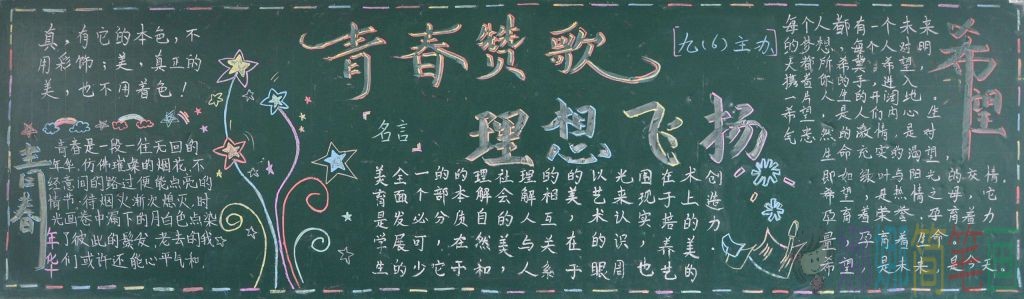 真,有它的本色,不
用彩饰;美,真正的
美,也不用着色!
青春
年华
青春是一段一往无回的
年华,仿佛璀璨的烟花,不
经意间的路过便能点亮的
情节,待烟火渐次熄灭,时
光画卷中漏下的月白色点染
了彼此的鬓发,老去的我
们或许还能心平气和.
青春赞歌
理想飞扬
[九(6)主办]
名言
美育是学生
全面发展的
一个必可少
的部分,它
的本质在于
理解自然和
社会的美,
理解人与人
的相互关系
的美,在于
以艺术的眼
光来认识周
围现实,也
在于若养艺
术上的美的
创造力.
希望
每个人都有一个未来
的梦想,每个人对明
天都所希望,希望,
携着你的手,进入
一片人生的开阔地.
希望,是人们内心生
气忽然的激情,是对
生命充实的渴望,
即如绿叶与阳光之 情,
希望,是热情的母, 它
孕育着荣誉,孕育着力
量,孕育着生命.
希望,是未来,是今天.